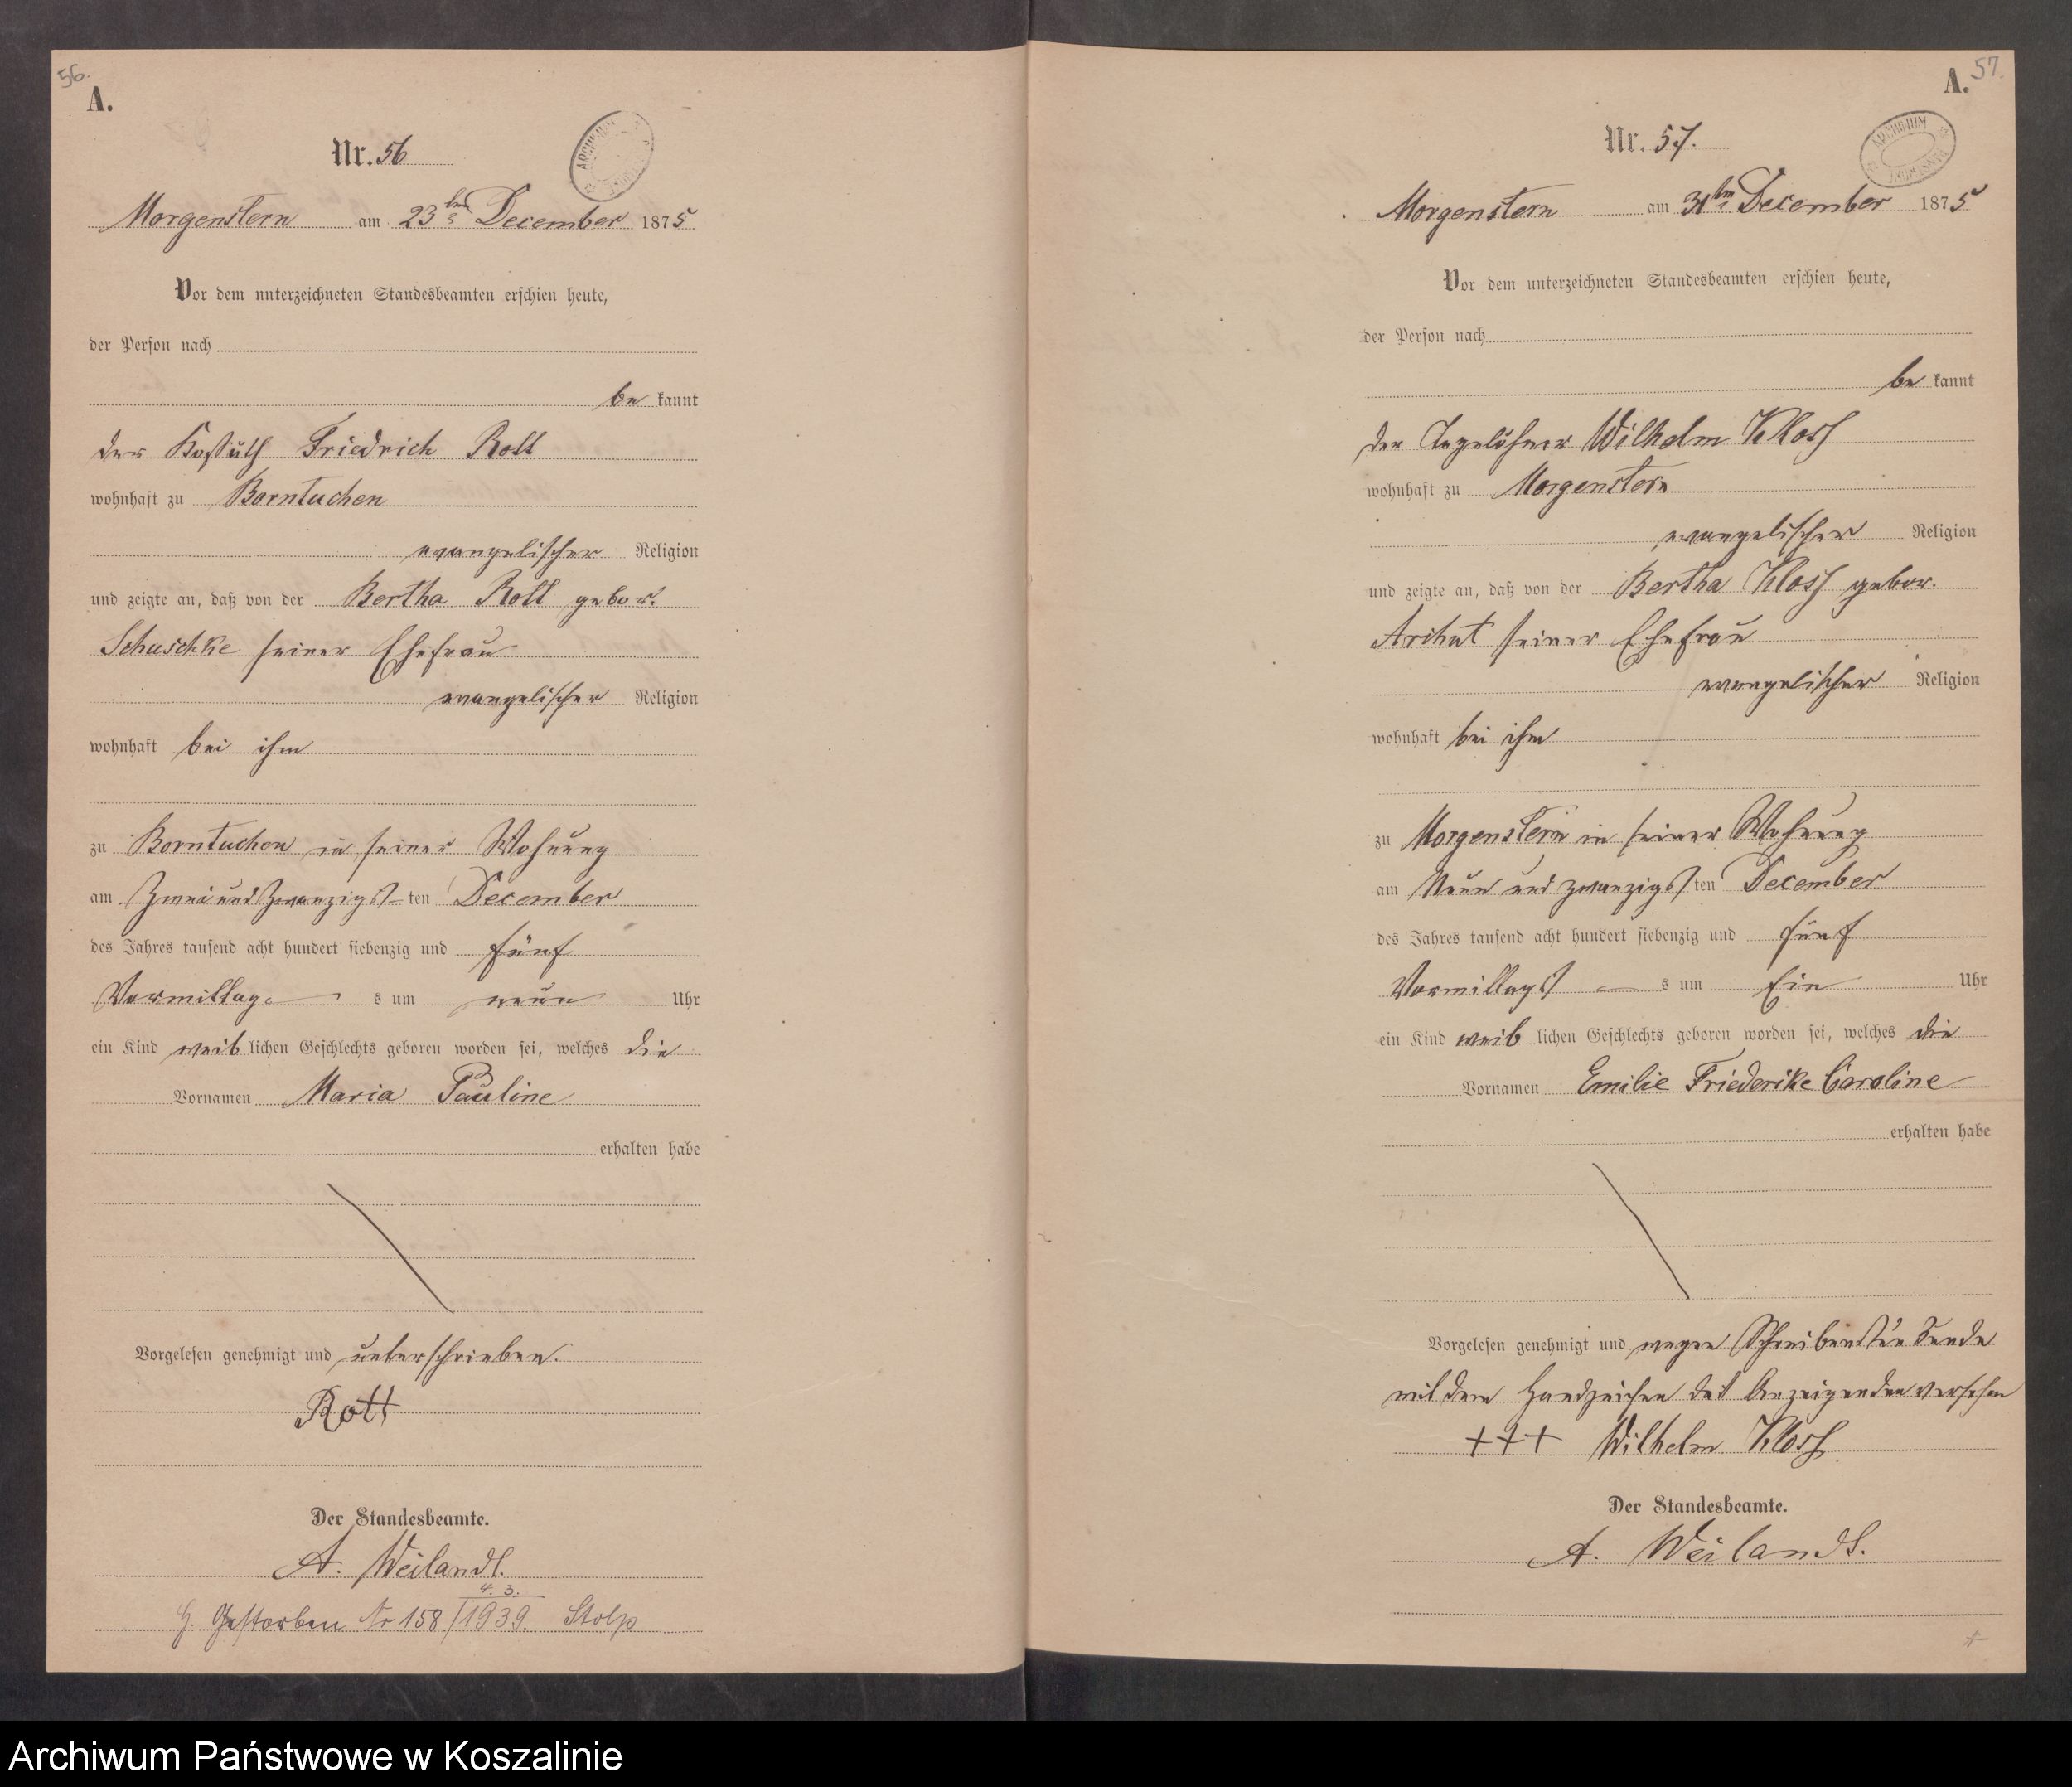 56.
A.
ARCHIWUM
Nr. 56
Morgenstern am 23ten December 1875
Vor dem unterzeichneten Standesbeamten erschien heute,
der Person nach
be kannt
der Friedrich Rott
wohnhaft zu Borntuchen
evangelischer Religion
und zeigte an, daß von der Bertha Rott gebor.
Schuschke seiner Ehefrau
evangelischer Religion
wohnhaft bei ihm
zu Borntuchen in seiner Wohnung
am Zwei und Zwanzigsten December
des Jahres tausend acht hundert siebenzig und fünf
Vormittags um neun Uhr
ein Kind weiblichen Geschlechts geboren worden sei, welches die
Vornamen Maria Pauline
erhalten habe
Vorgelesen genehmigt und unterschrieben.
Rott
Der Standesbeamte.
A. Weilandt.
4. 3.
Gestorben Nr 158/1939. Stolp
57.
A.
ARCHIWUM
Nr. 57.
Morgenstern am 31ten December 1875
Vor dem unterzeichneten Standesbeamten erschien heute,
der Person nach
be kannt
der Tagelöhner Wilhelm Kloss
wohnhaft zu Morgenstern
evangelischer Religion
und zeigte an, daß von der Bertha Kloss gebor.
seiner Ehefrau
evangelischer Religion
wohnhaft bei ihm
zu Morgenstern in seiner Wohnung
am Neun und zwanzigsten December
des Jahres tausend acht hundert siebenzig und fünf
Vormittags um Ein Uhr
ein Kind weiblichen Geschlechts geboren worden sei, welches die
Vornamen Emilie Friederike Caroline
erhalten habe
Vorgelesen genehmigt und wegen Schreibensunkunde
mit dem Handzeichen des Anzeigenden versehen
+++ Wilhelm Kloss
Der Standesbeamte.
A. Weilandt.
Archiwum Państwowe w Koszalinie